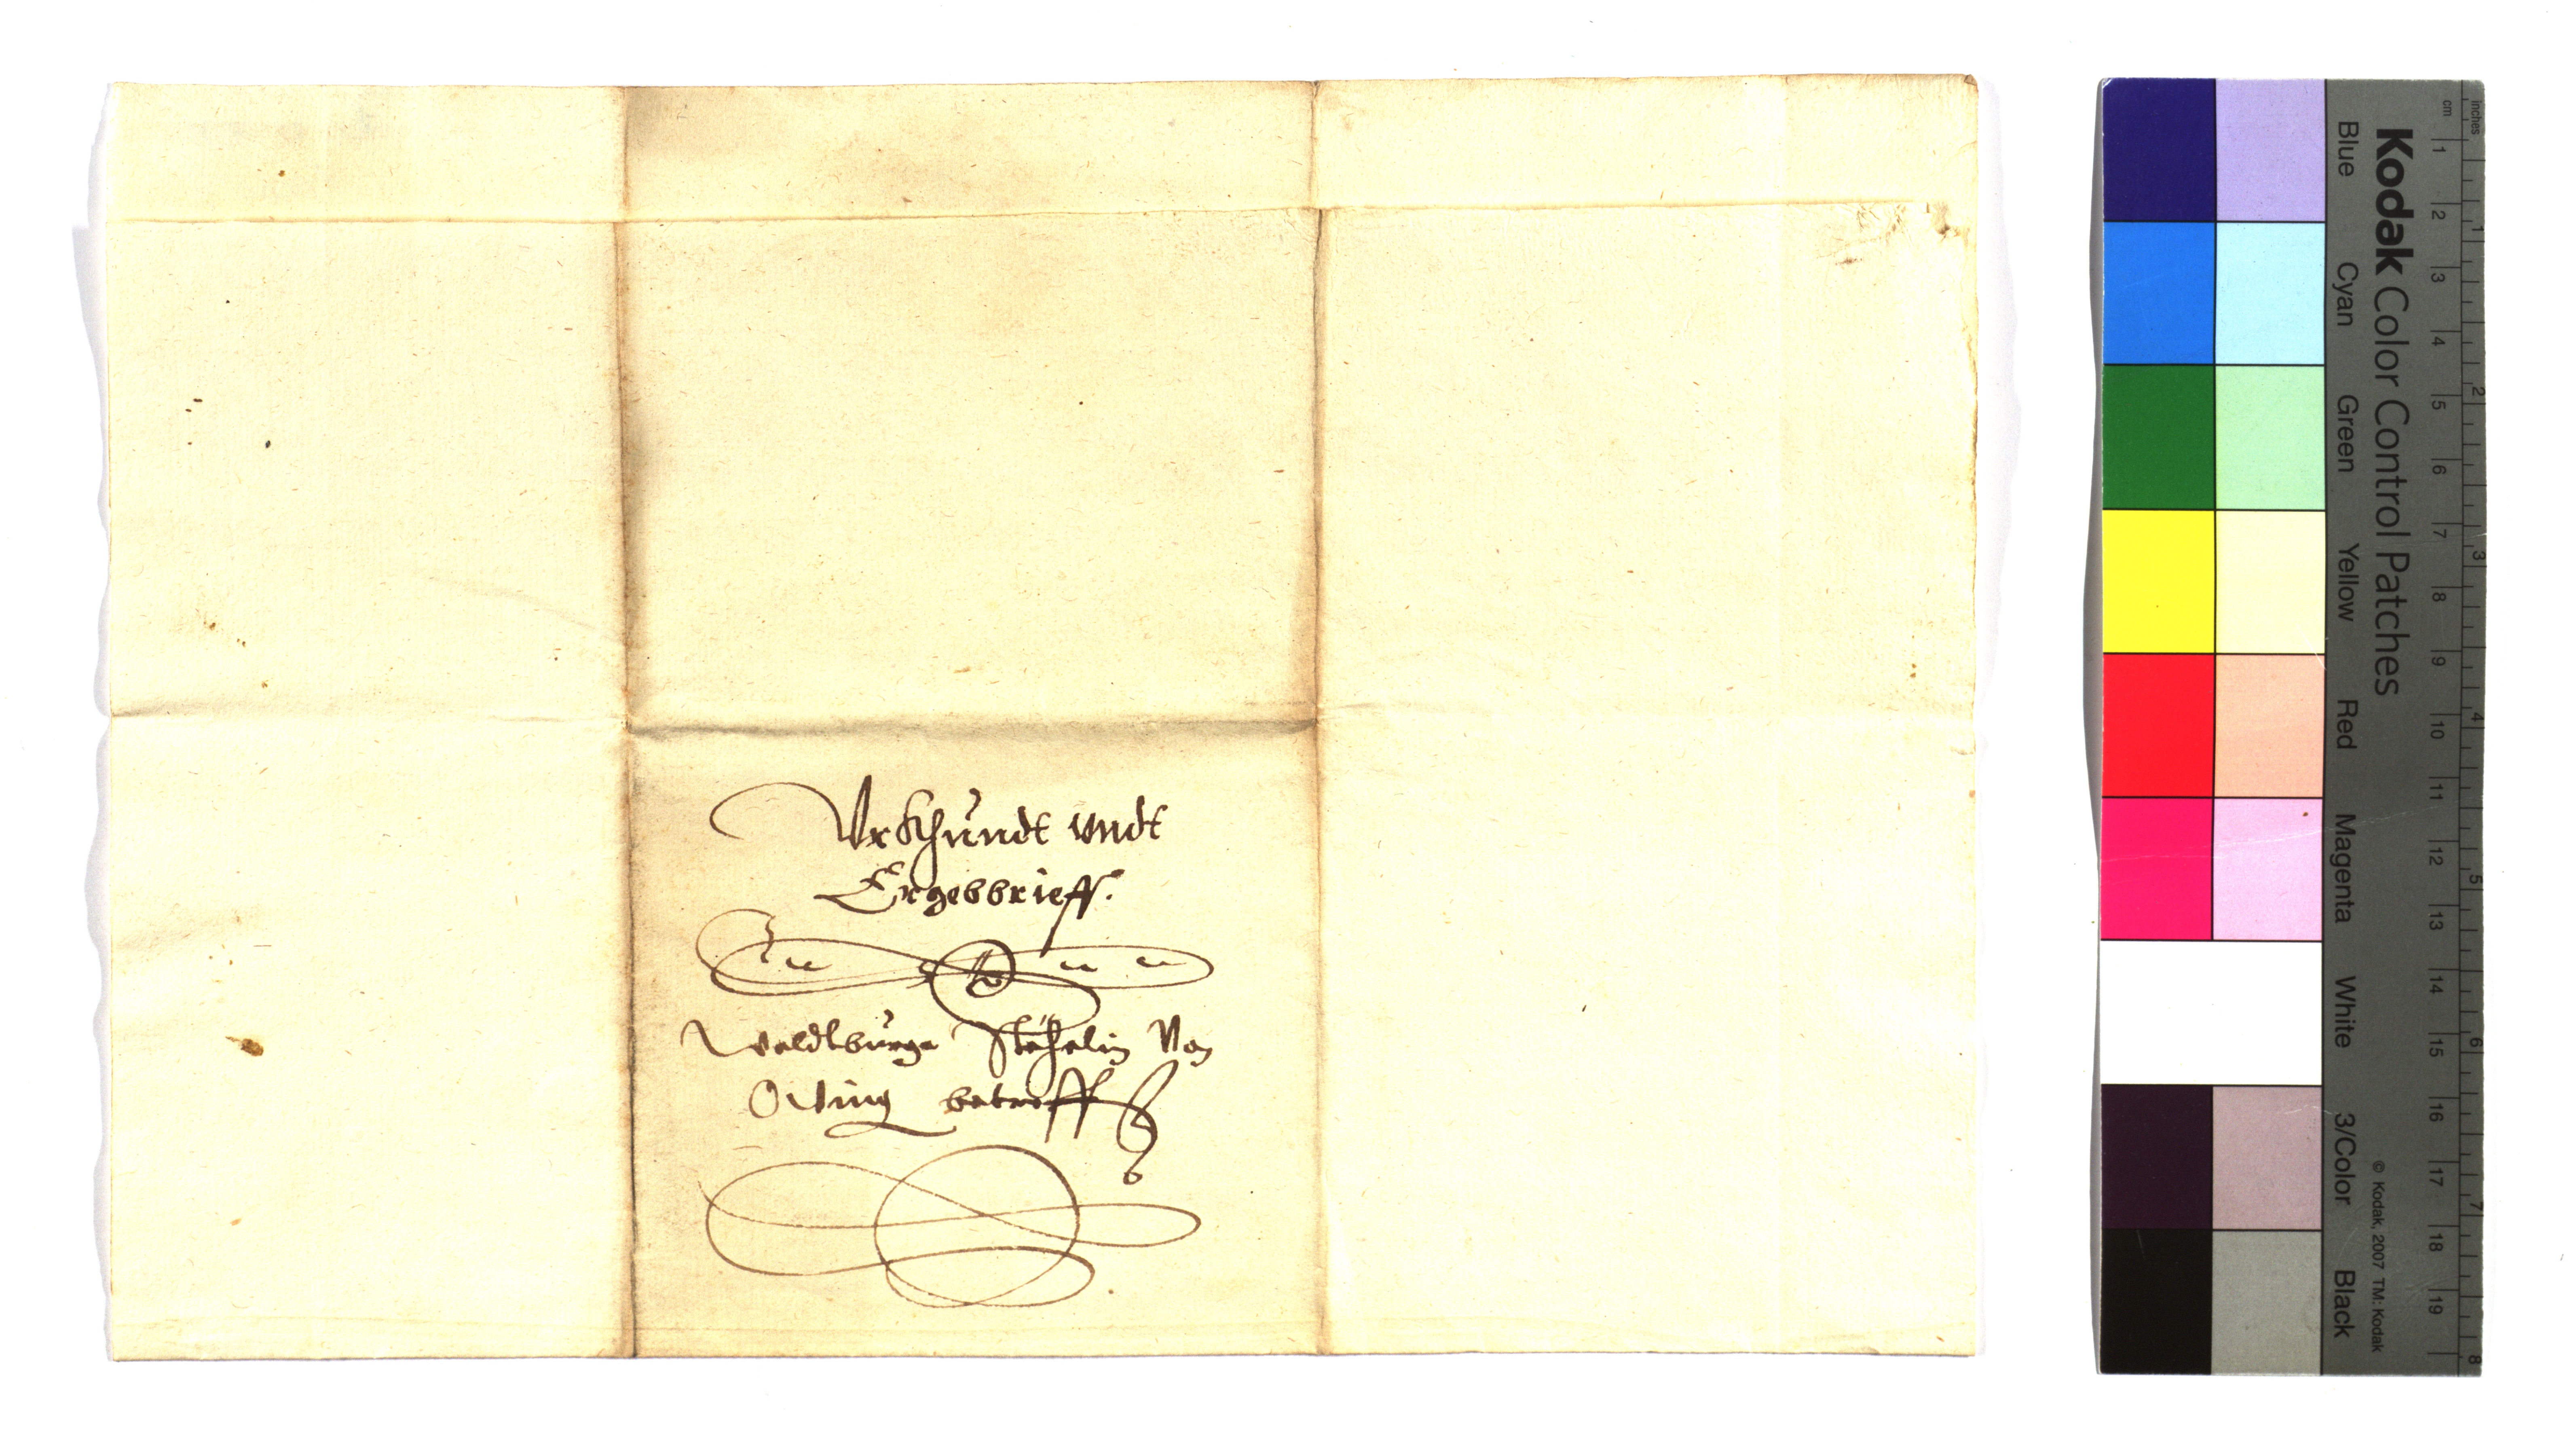 Vrkhundt vndt
Ergebbrieff.
Waldtburga Stehelin Von
Owing betreff
Kodak Color Control Patches
Blue Cyan Green Yellow Red Magenta White 3/Color Black
© Kodak, 2007 TM: Kodak
inches 1 2 3 4 5 6 7 8
cm 1 2 3 4 5 6 7 8 9 10 11 12 13 14 15 16 17 18 19